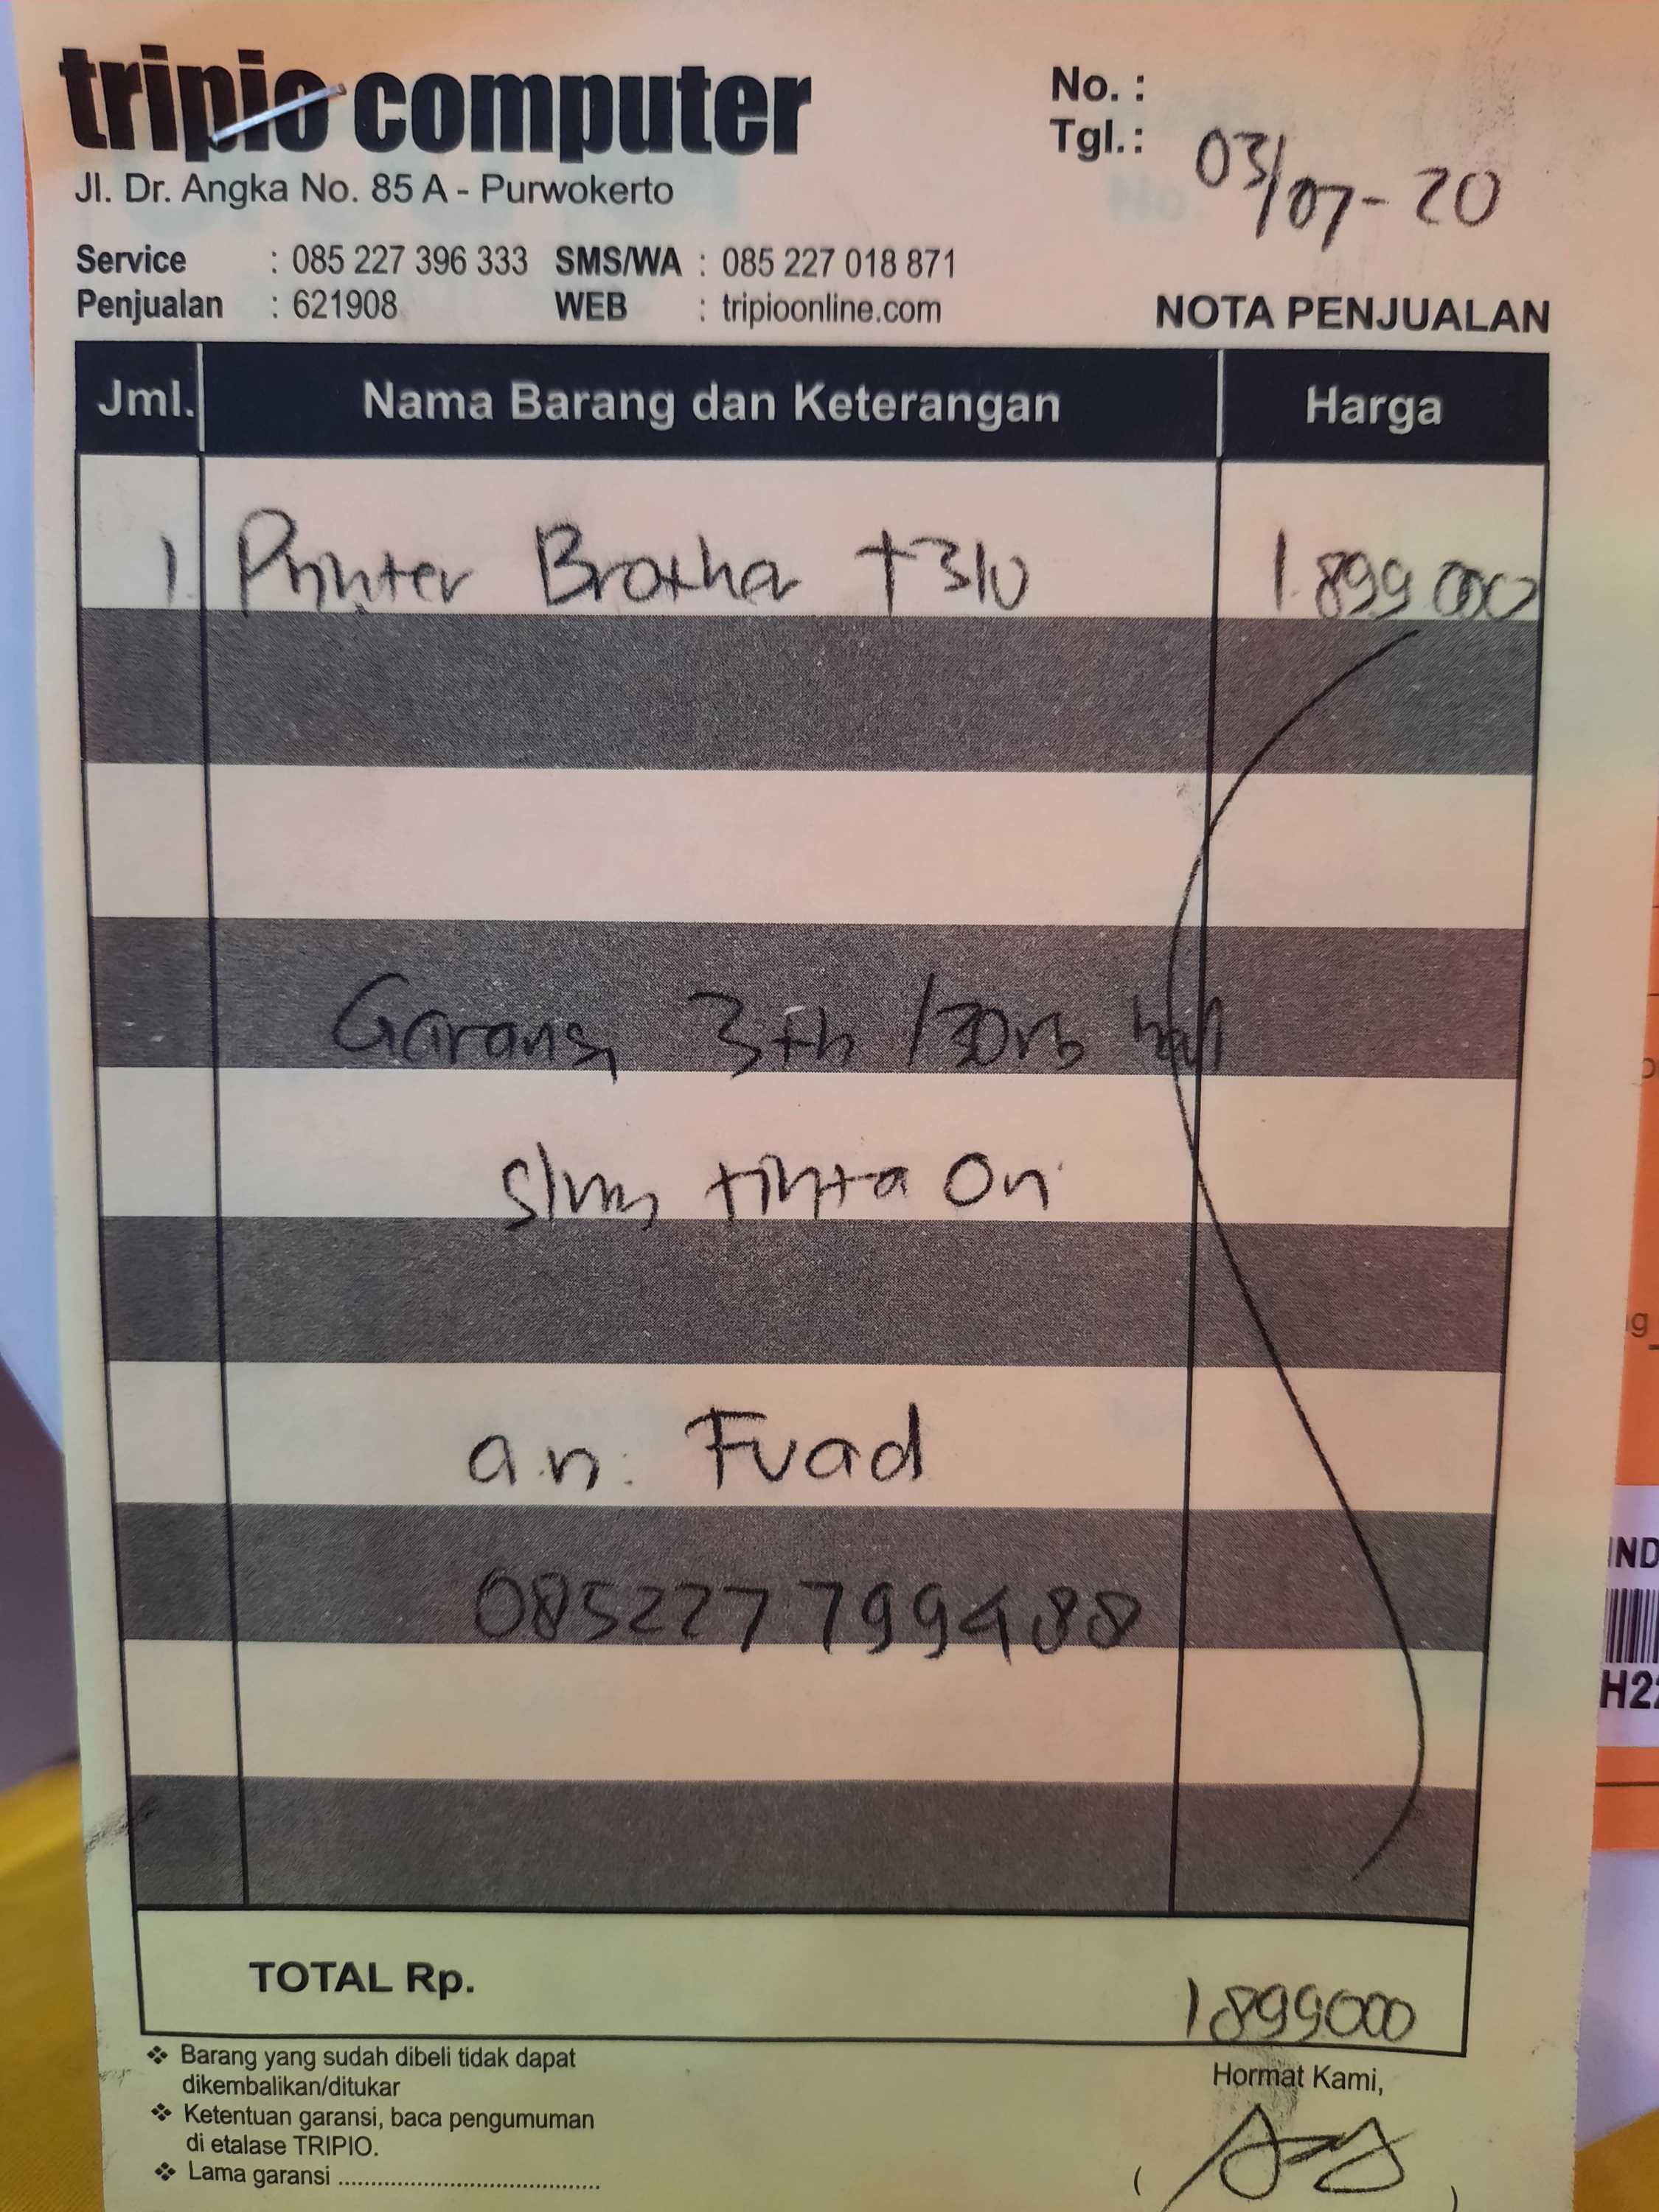 tripio computer
Jl. Dr. Angka No. 85 A - Purwokerto
No. :
Tgl. : 03/07-20
Service : 085 227 396 333 SMS/WA : 085 227 018 871
Penjualan : 621908 WEB : tripioonline.com
NOTA PENJUALAN
Jml. Nama Barang dan Keterangan Harga
1 Printer Brother T310 1.899 000
Garansi 3th /30rb hal
tinta Ori
a.n. Fuad
085227799488
TOTAL Rp. 1899000
❖ Barang yang sudah dibeli tidak dapat
dikembalikan/ditukar
❖ Ketentuan garansi, baca pengumuman
di etalase TRIPIO.
❖ Lama garansi ......................................
Hormat Kami,
( )
IND
H22